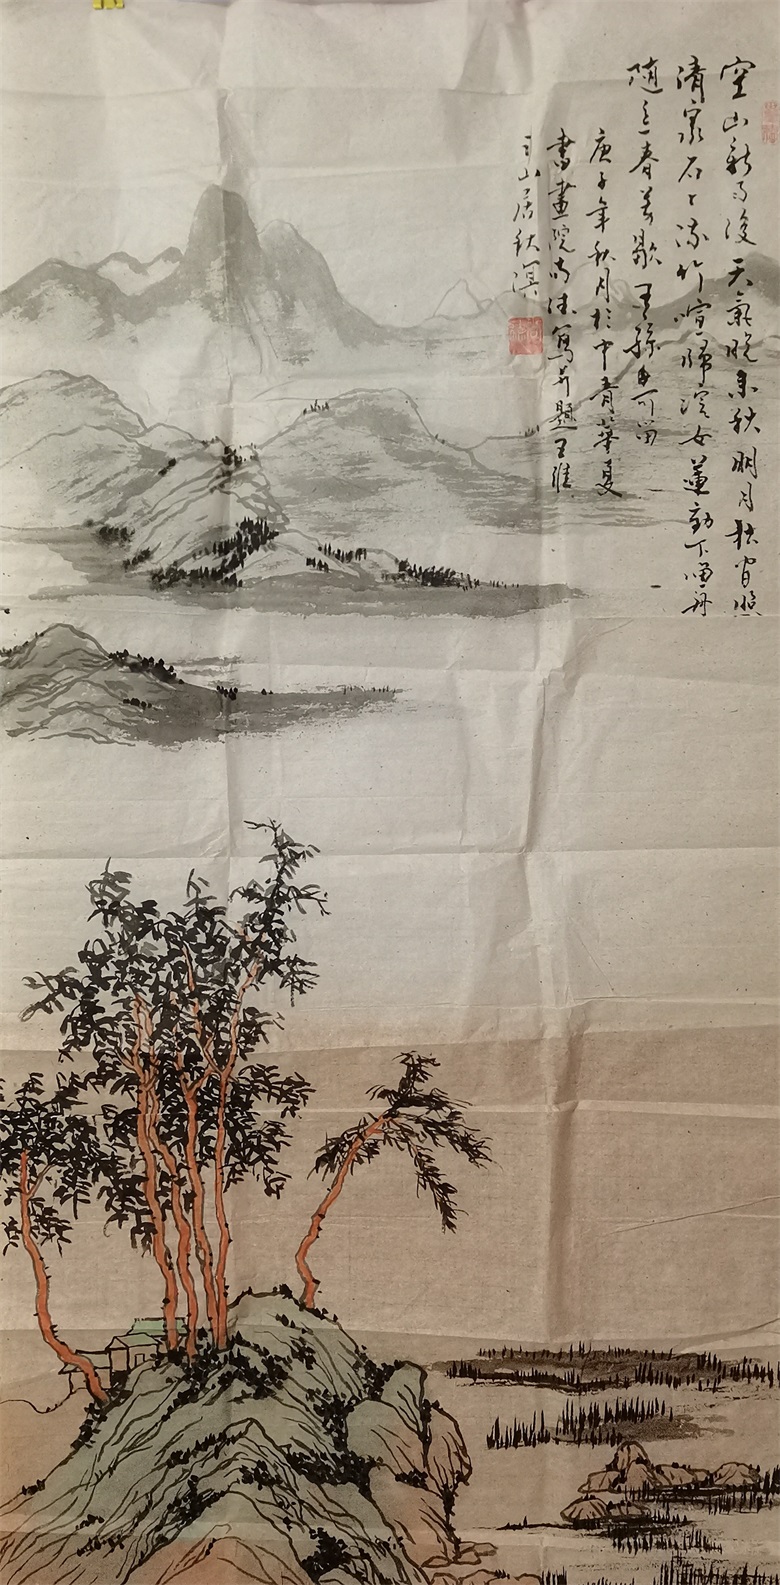 空山新雨後天氣晚來秋明月松间照
清泉石上流竹喧歸浣女蓮動下漁舟
隨意春芳歇王孫自可留
庚子年秋月於中青華夏
書畫院尚沫寫并題王維
之山居秋溟